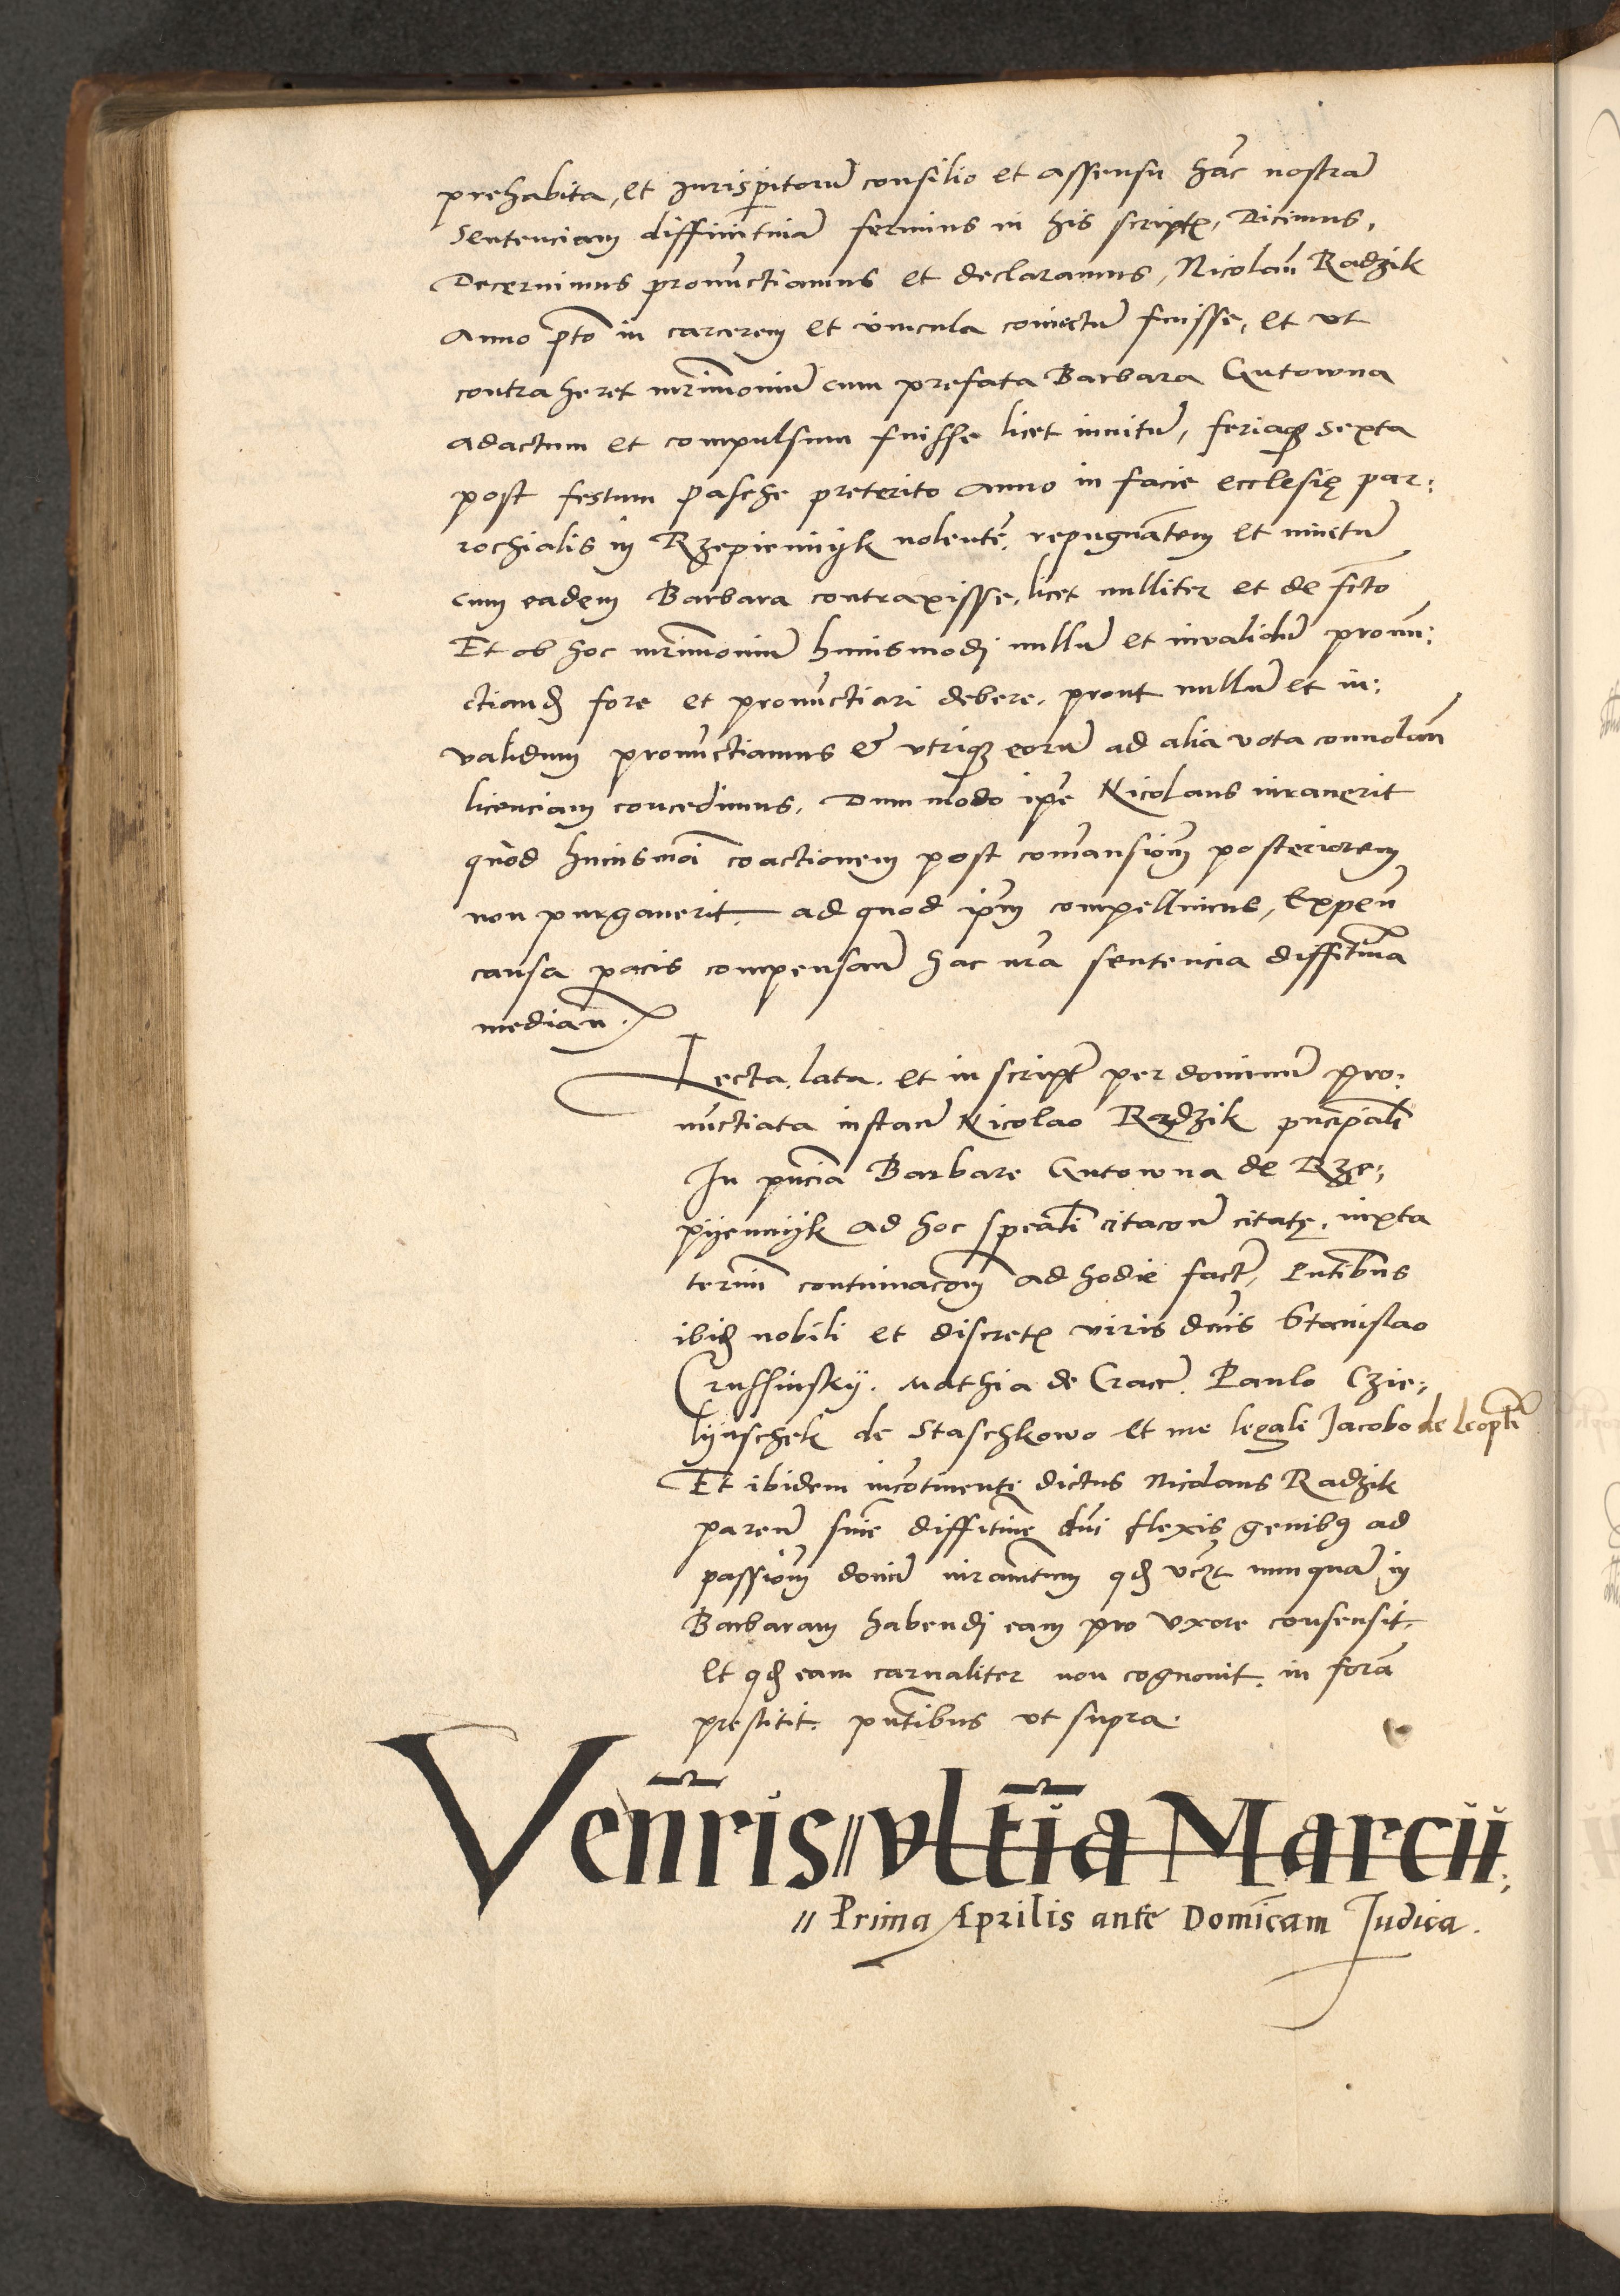 prehabita, et Jurisperitorū consilio et assensu hāc nostrā
Sentenciam diffinitiuā ferimus in his scriptꝭ, Dicimus,
Decernimus pronūctiamus et declaramus, Nicolaū Radzik
Anno p̄to in carcerem et vincula coniectū fuisse, et vt
contraheret mr̄imoniū cum prefata Barbara Gutowna
adactum et compulsum fuisse licet inuitū, feriaqꝫ sexta
post festum Pasche preterito anno in facie ecclesię par:
rochialis in Rzepiennyk nolentē, repugnātem et inuitū
cum eadem Barbara contraxisse, licet nulliter et de fc̄to
Et ob hoc mr̄imoniū huiusmodi nullū et inualidū pronū:
ctiandꝫ fore et pronūctiari debere, prout nullū et in:
validum pronūctiamus & vtriqꝫ eorū ad alia vota conuolan̄
licenciam concedimus, Dummodo ip̄e Nicolaus iurauerit
quod huiusmōi coactionem post comansionē posteriorem
non purgauerit, ad quod ip̄m compellimus, Expen̄
causa pacis compensan̄ hac nr̄a sentencia diffītiua
median̄.
Lecta, lata, et in script̄ per dominū pro:
nūctiata instan̄ Nicolao Radzik prīncipali
In pn̄cia Barbare Gutowna de Rze:
pyennyk ad hoc speāli citacōne citatę, iuxta
termi continuacōnem ad hodie fact̄, Pn̄tibus
ibidꝫ nobili et discretꝭ viris dn̄is Stanislao
Crussinsky, Mathia de Crac̄, Paulo Czie:
lyuschek de Staschkowo et me legali Jacobo de Leopt̄
Et ibidem incōtinente dictus Nicolaus Radzik
paren̄ sn̄ie diffitiue dn̄i flexis genibꝰ ad
passionē domī iuramētum qdꝫ vcꝫt nunquā in
Barbaram habendi eam pro vxore consensit,
Et qdꝫ eam carnaliter non cognouit, in formā
prestitit, pn̄tibus vt supra.
Ven̄ris // vltīa Marcii
// Prima Aprilis ante Domīcam Judica.